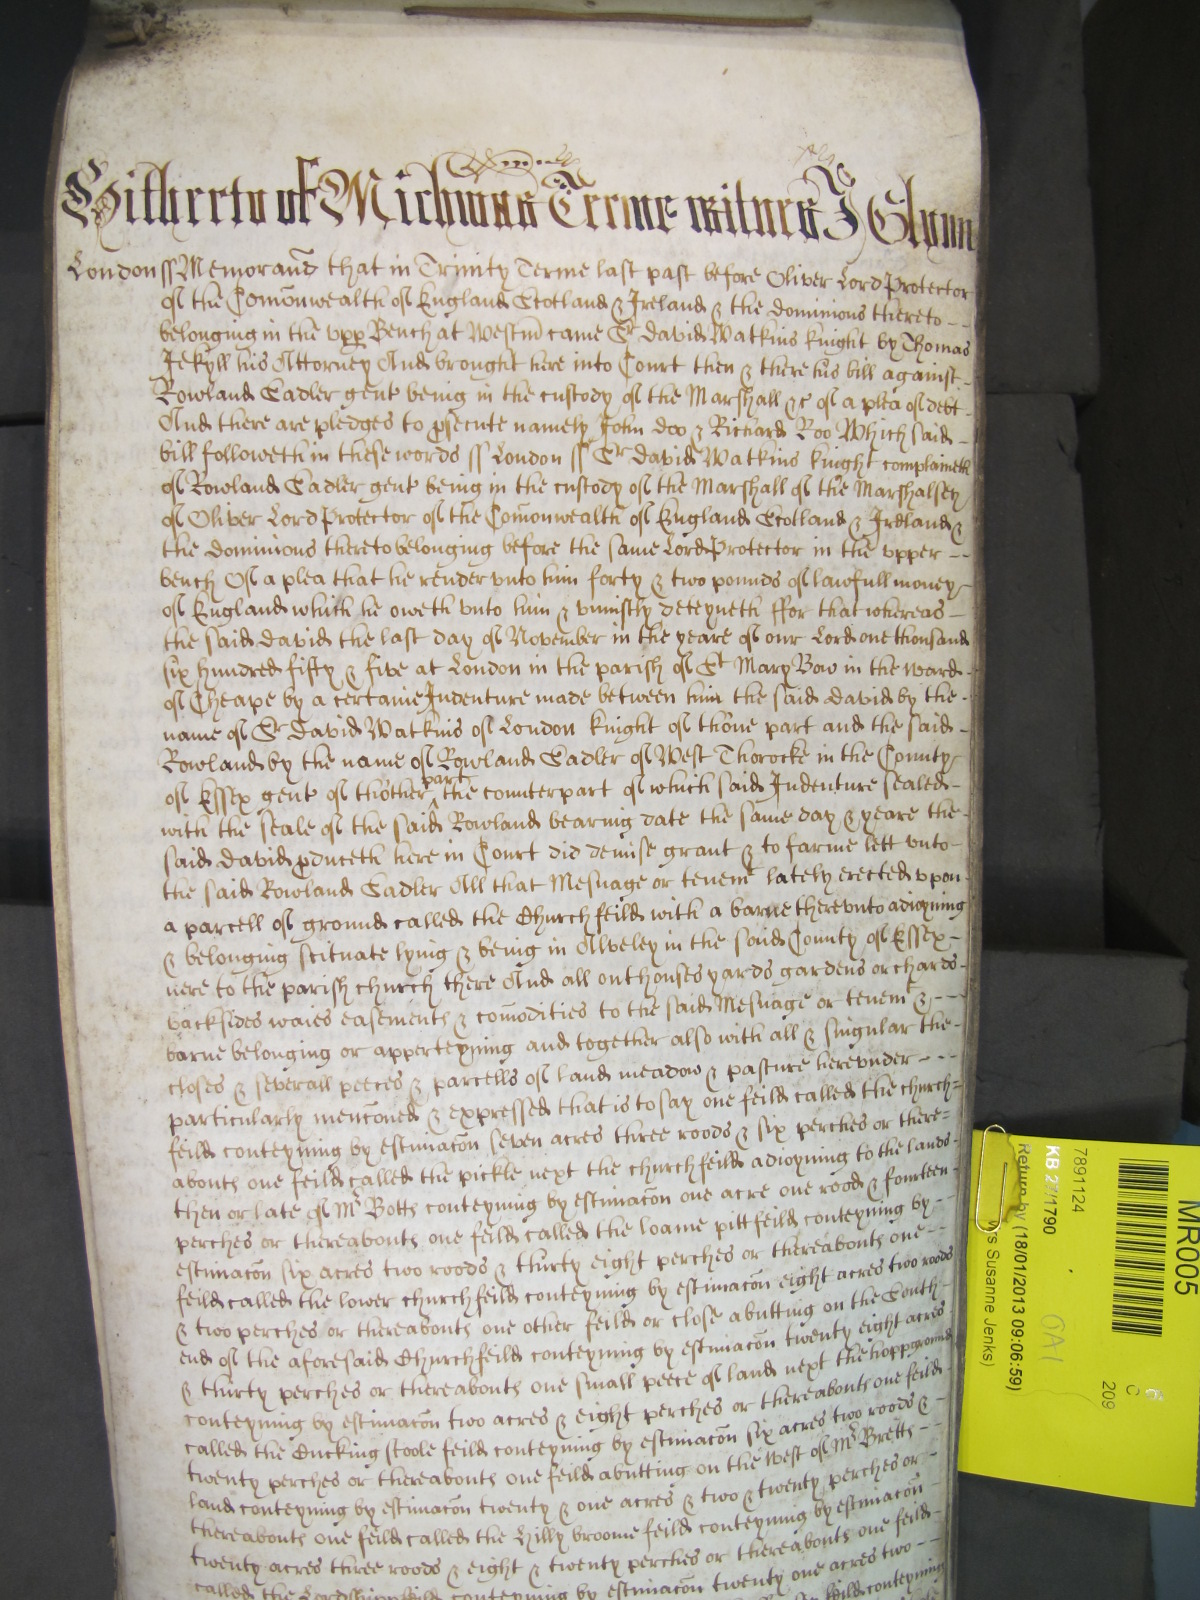 Hitherto of Michmas Terme witnes J Glynn
London ss Memorand that in Trinity Terme last past before Oliver Lord Protector
of the Comonwealth of England Scotland & Ireland & the dominions thereto
belonging in the upp Bench at Westm came Sr David Watkins knight by Thomas
Jekyll his Attorney And brought here into Court then & there his bill against
Rowland Sadler gent being in the custody of the Marshall &c of a plea of debt
And there are pledges to psecute namely John doo & Richard Roo Which said
bill followeth in these words ss London ss Sr David Watkins knight complaineth
of Rowland Sadler gent being in the custody of the Marshall of the Marshalsey
of Oliver Lord Protector of the Comonwealth of England Scotland & Ireland &
the dominions thereto belonging before the same Lord Protector in the upper
bench Of a plea that he render unto him forty & two pounds of lawfull money
of England which he oweth unto him & uniustly deteyneth ffor that whereas
the said David the last day of November in the yeare of our Lord one thousand
six hundred fifty & five at London in the parish of St Mary Bow in the ward
of Cheape by a certaine Indenture made between him the said David by the
name of Sr David Watkins of London knight of thone part and the said
Rowland by the name of Rowland Sadler of West Thorocke in the County
of Essex gent of thother part the counterpart of which said Indenture sealed
with the seale of the said Rowland bearing date the same day & yeare the
said David pduceth here in Court did demise grant & to farme lett unto
the said Rowland Sadler All that Mesuage or tenemt lately erected upon
a parcell of ground called the Churchfeild with a barne thereunto adioyning
& belonging scituate lying & being in Alveley in the said County of Essex
nere to the parish church there And all outhouses yards gardens orchards
backsides waies easements & comodities to the said Mesuage or tenemt &
barne belonging or apperteyning and together also with all & singular the
closes & severall peeces & parcells of land meadow & pasture hereunder
particularly menconed & expressed that is to say one feild called the church=
feild conteyning by estimacon seven acres three roods & six perches or there=
abouts one feild called the pickle next the churchfeild adioyning to the lands
then or late of Mr Botts conteyning by estimacon one acre one rood & fourteen
perches or thereabouts one feild called the loame pitt feild conteyning by
estimacon six acres two roods & thirty eight perches or thereabouts one
feild called the lower churchfeild conteyning by estimacon eight acres two roods
& two perches or thereabouts one other feild or close abutting on the South
end of the aforesaid Churchfeild conteyning by estimacon twenty eight acres
& thirty perches or thereabouts one small peece of land next the hoppground
conteyning by estimacon two acres & eight perches or thereabouts one feild
called the Cucking stoole feild conteyning by estimacon six acres two roods &
twenty perches or thereabouts one feild abutting on the West of Mr Bretts
land conteyning by estimacon twenty & one acres & two & twenty perches or
thereabouts one feild called the hilly broome feild conteyning by estimacon
twenty acres three roods & eight & twenty perches or thereabouts one feild
called the Lordshipp feild conteyning by estimacon twenty one acres two
MR005
C
209
7891124
KB 27/1790
Return by (18/01/2013 09:06:59)
Susanne Jenks)